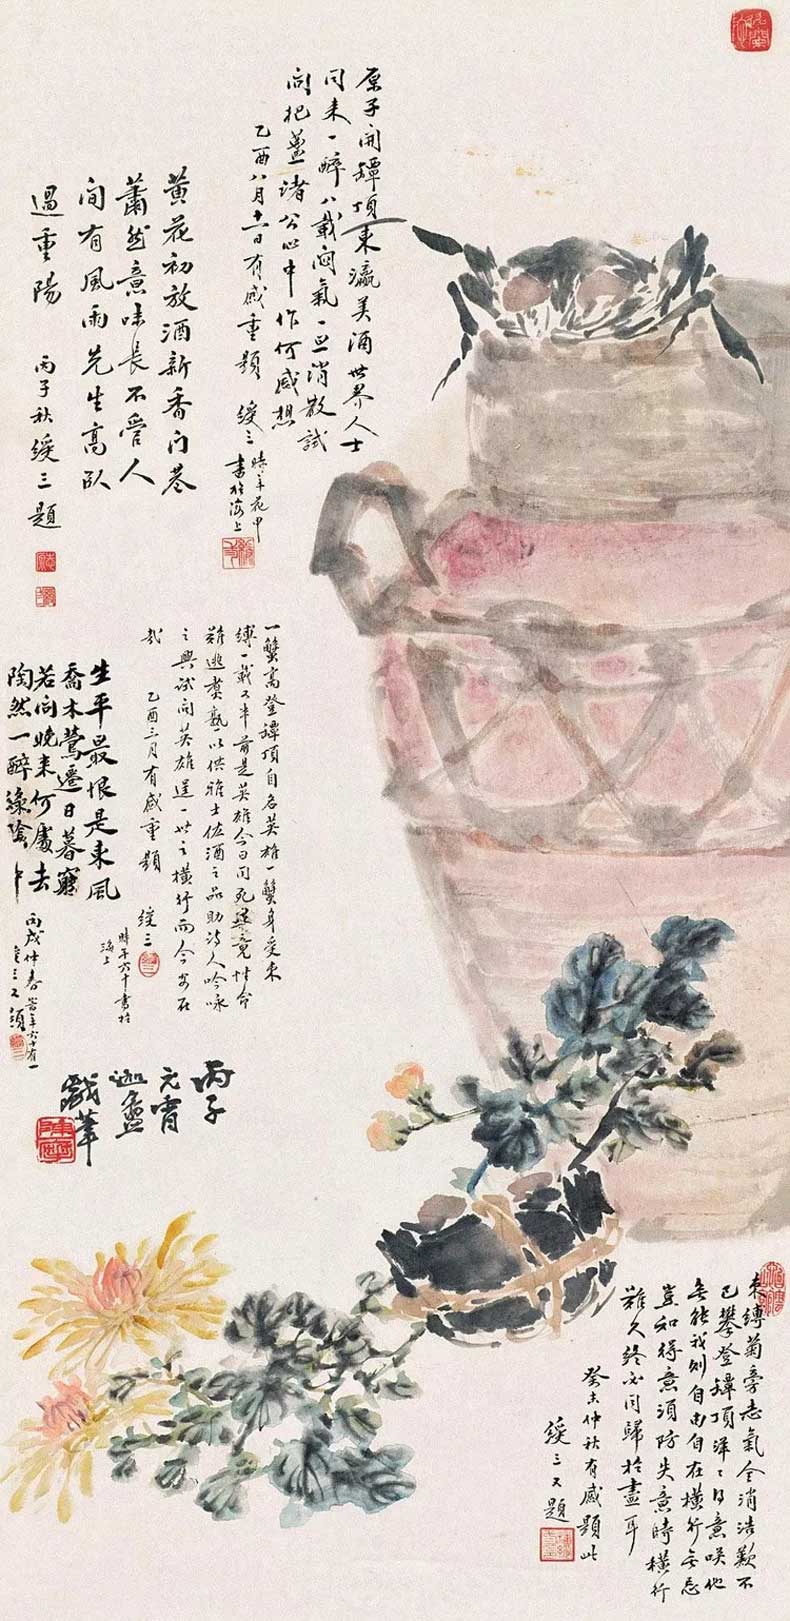 原子開罈頂東瀛美酒世界人士
同来一醉八載悶氣一旦消散試
問把盞諸公心中作何感想
乙酉八月十一日有感重題 綬三
時年花甲
書於海上
黃花初放酒新香門巷
蕭然意味長不管人
間有風雨先生高臥
過重陽 丙子秋綬三題
一蟹高登罈頂自名英雄一蟹身受束
縛一載又半前是英雄今日同死畢竟性命
難逃煑熟以供雅士佐酒之品助詩人吟咏
之興試問英雄逞一世之橫行而今安在
哉 乙酉三月有感重題 綬三
時年六十書於
海上
生平最恨是東風
喬木鶯遷日暮窮
若問晚来何處去
陶然一醉綠陰中
丙戌仲春 時年六十有一
綬三又題
丙子
元宵
迦盦
戲筆
束縛菊旁志氣全消浩歎不
已攀登罈頂洋洋得意咲他
無能我則自由自在橫行無忌
豈知得意須防失意時橫行
難久終必同歸於盡耳
癸未仲秋有感題此
綬三又題